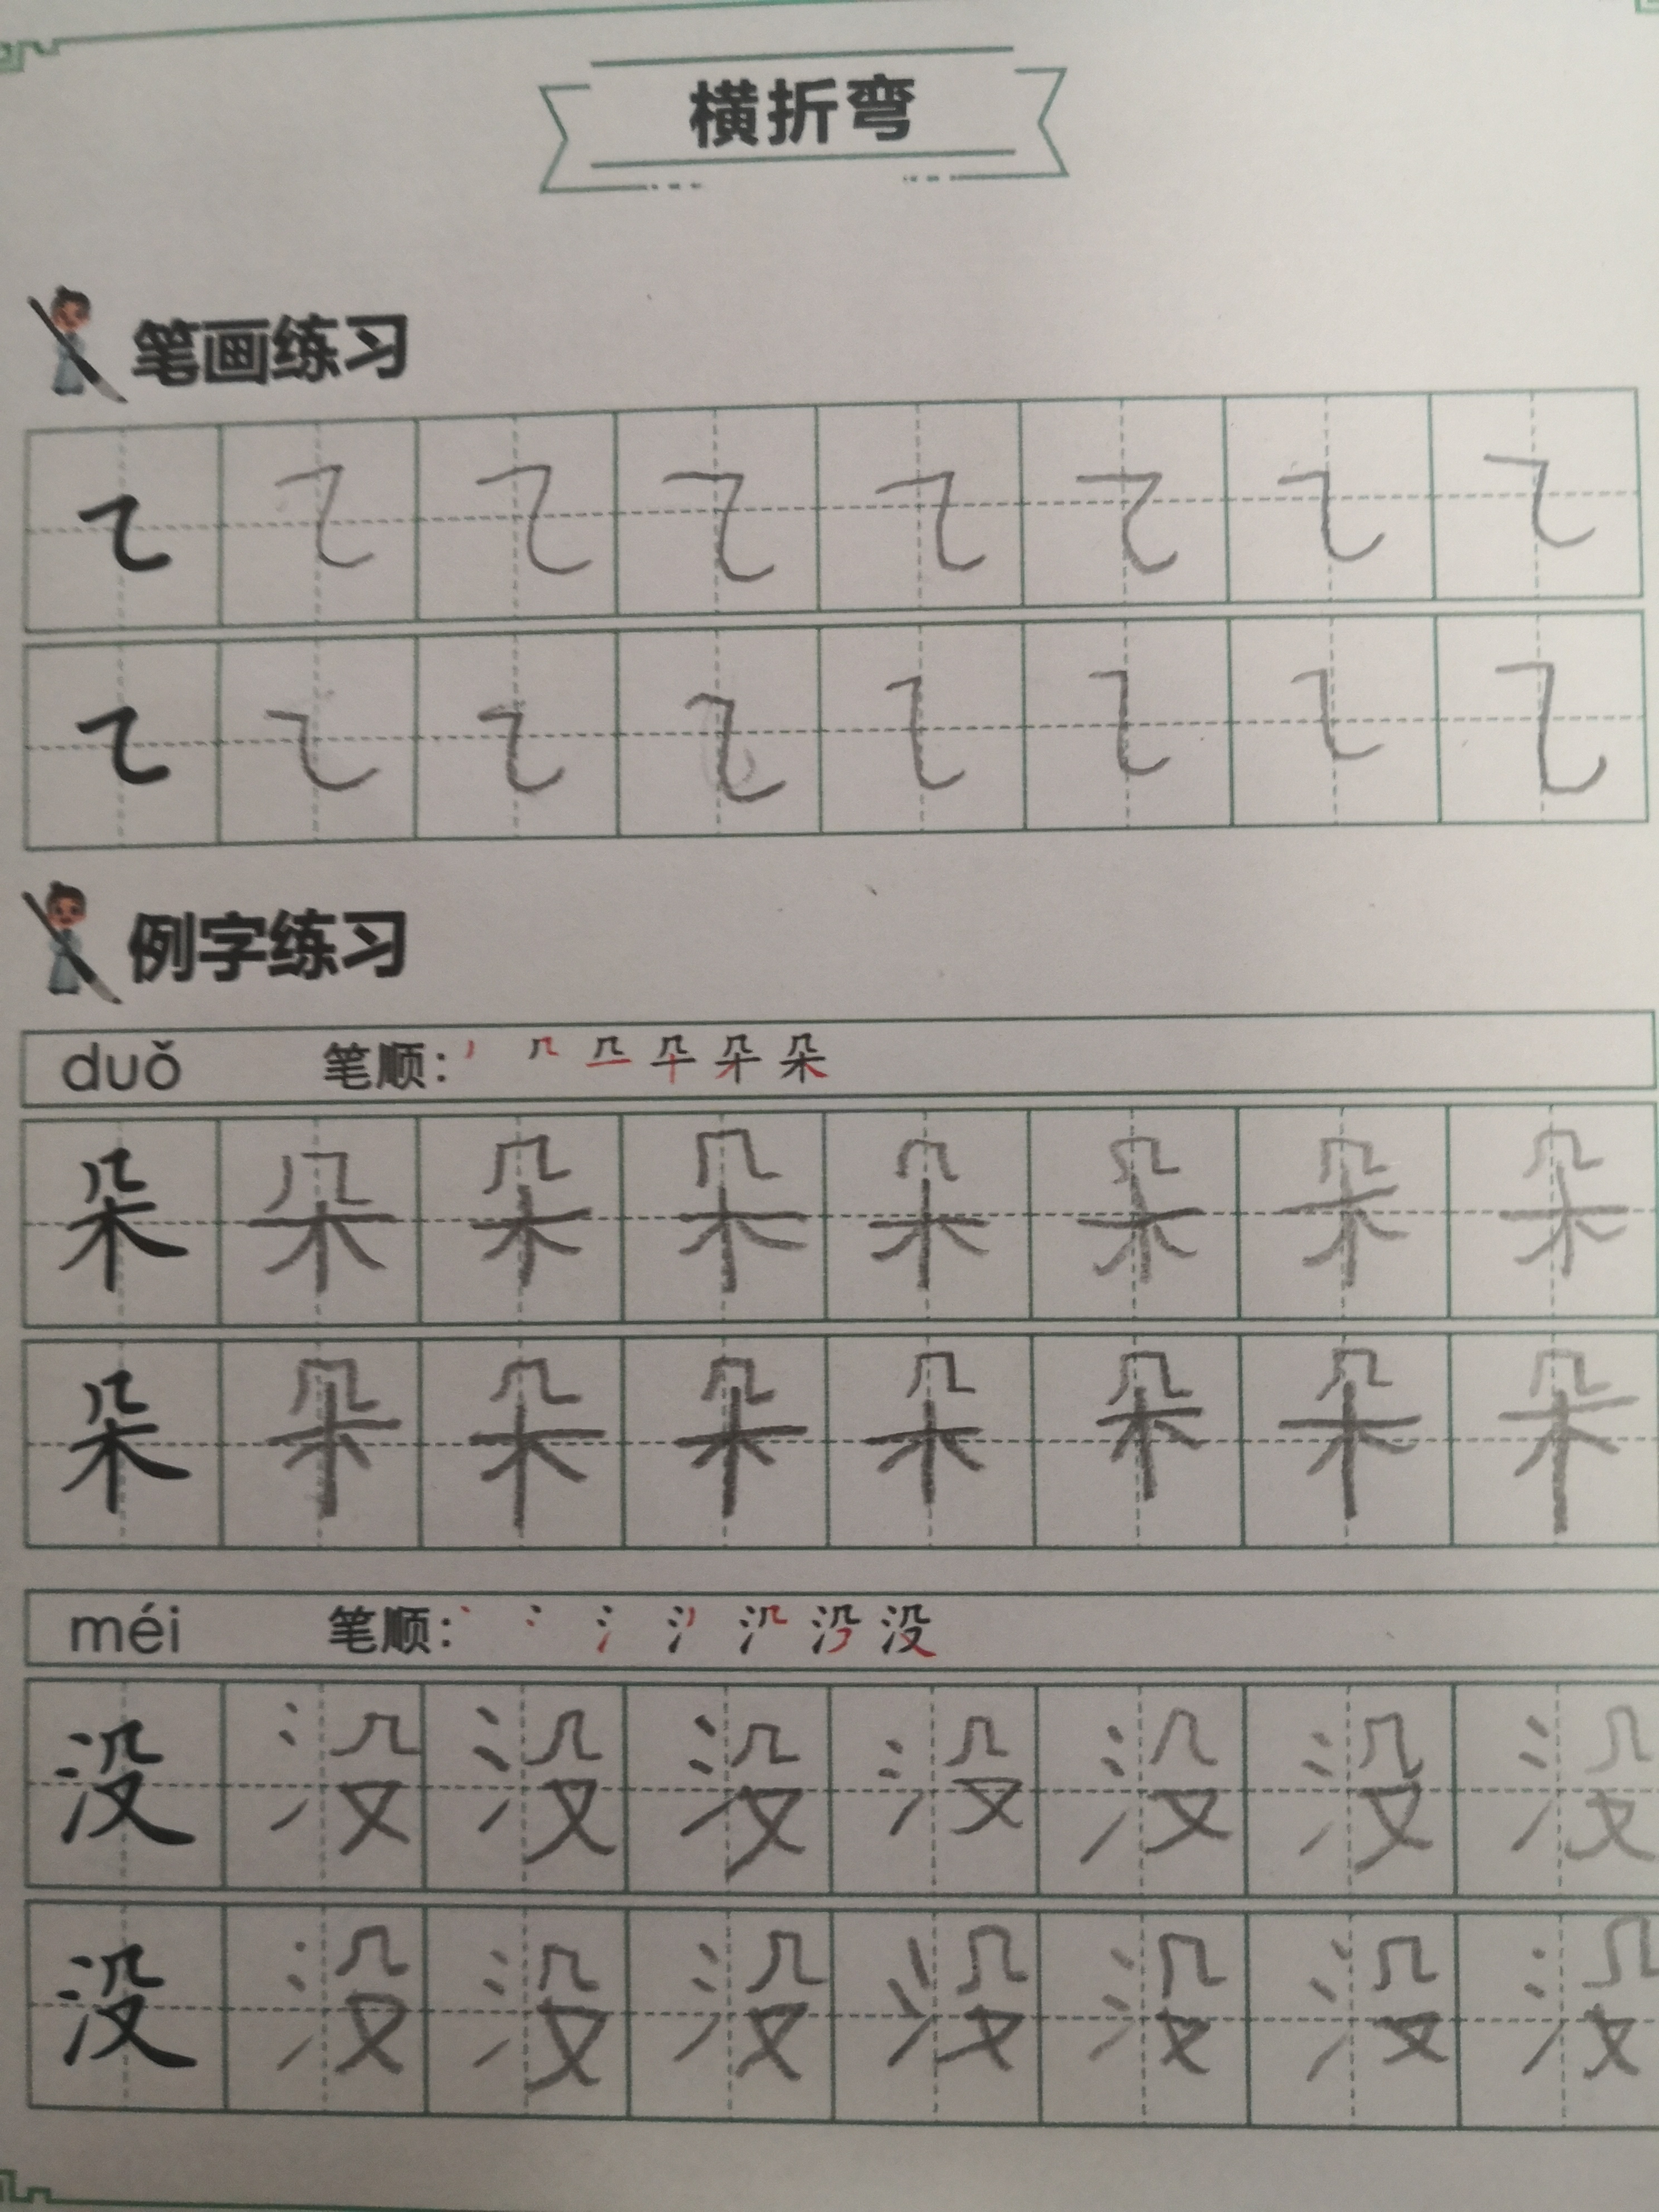 横折弯
笔画练习
㇍ ㇍ ㇍ ㇍ ㇍ ㇍ ㇍ ㇍
㇍ ㇍ ㇍ ㇍ ㇍ ㇍ ㇍ ㇍
例字练习
duǒ 笔顺：
朵 朵 朵 朵 朵 朵 朵 朵
朵 朵 朵 朵 朵 朵 朵 朵
méi 笔顺：
没 没 没 没 没 没 没 没
没 没 没 没 没 没 没 没